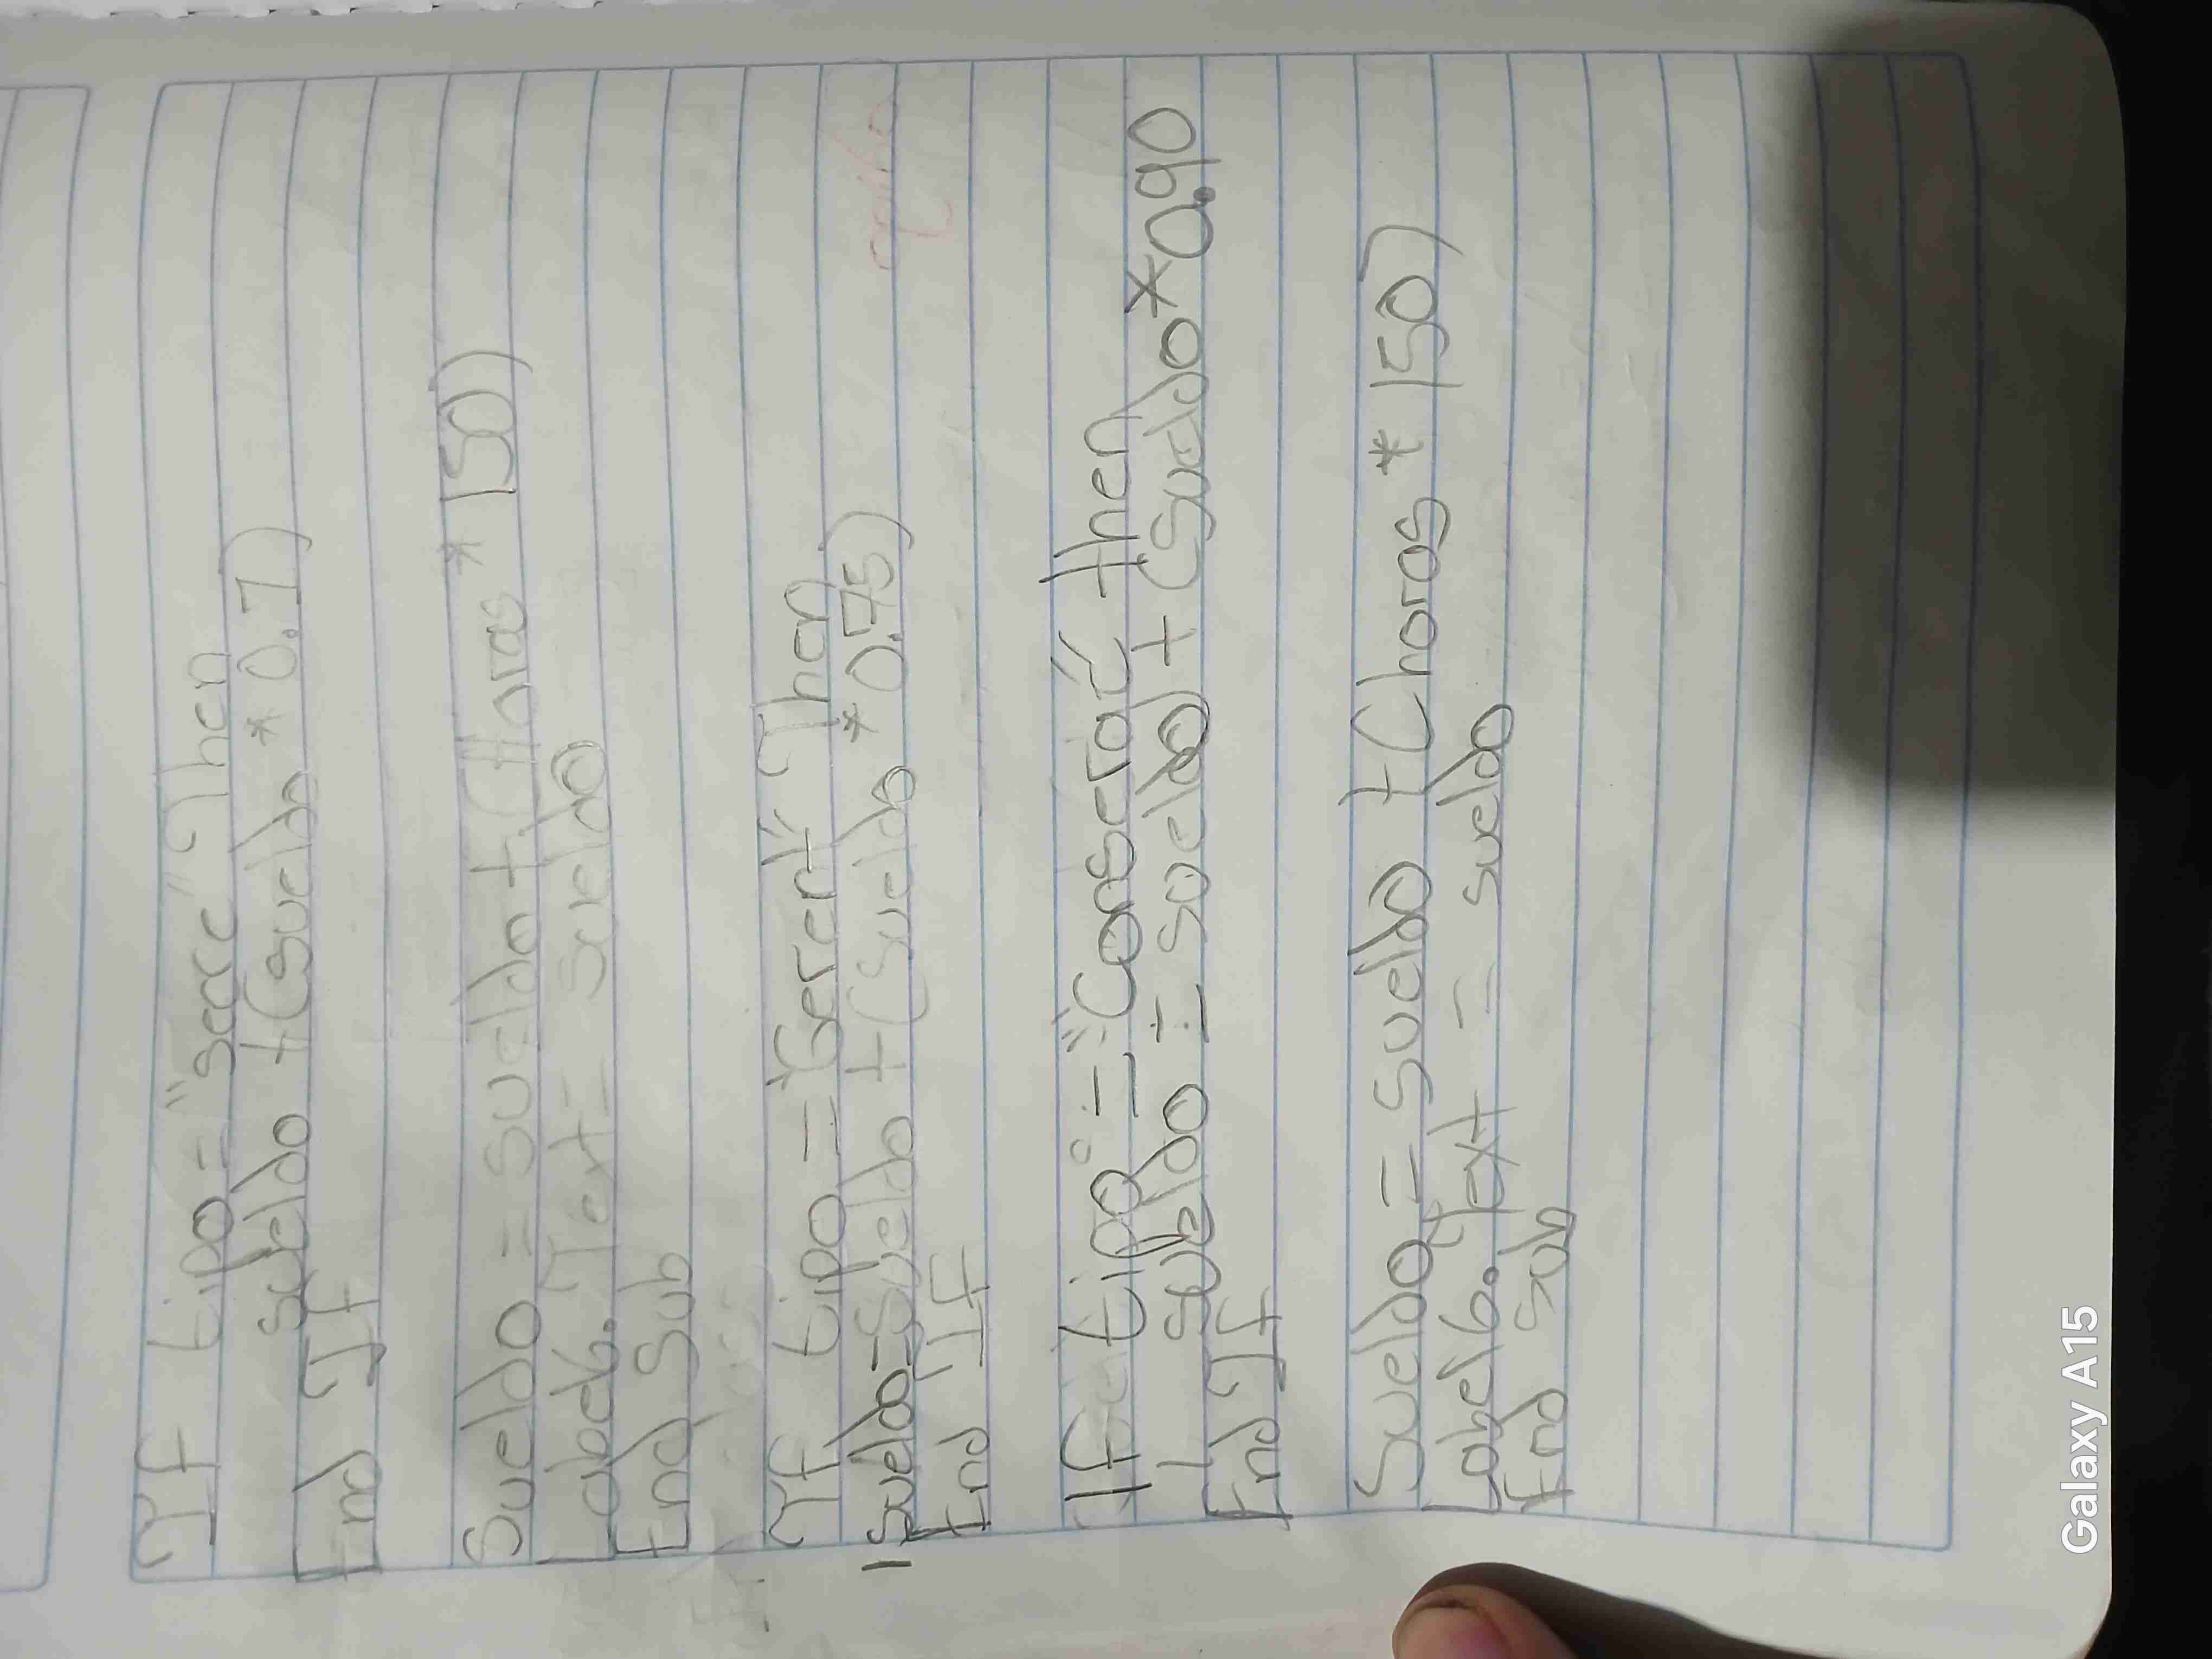 If tipo = "Secre" Then
sueldo + (sueldo * 0.7)
End If
Sueldo = sueldo + (Horas * 150)
Label6. Text = sueldo
End Sub
If tipo = "Gerent" Then
Sueldo = Sueldo + (Sueldo * 0.75)
End If
If tipo = "Conserae" then
sueldo = sueldo + (sueldo * 0.90
End If
Sueldo = sueldo + (horas * 150)
Label6. Text = sueldo
End Sub
Galaxy A15